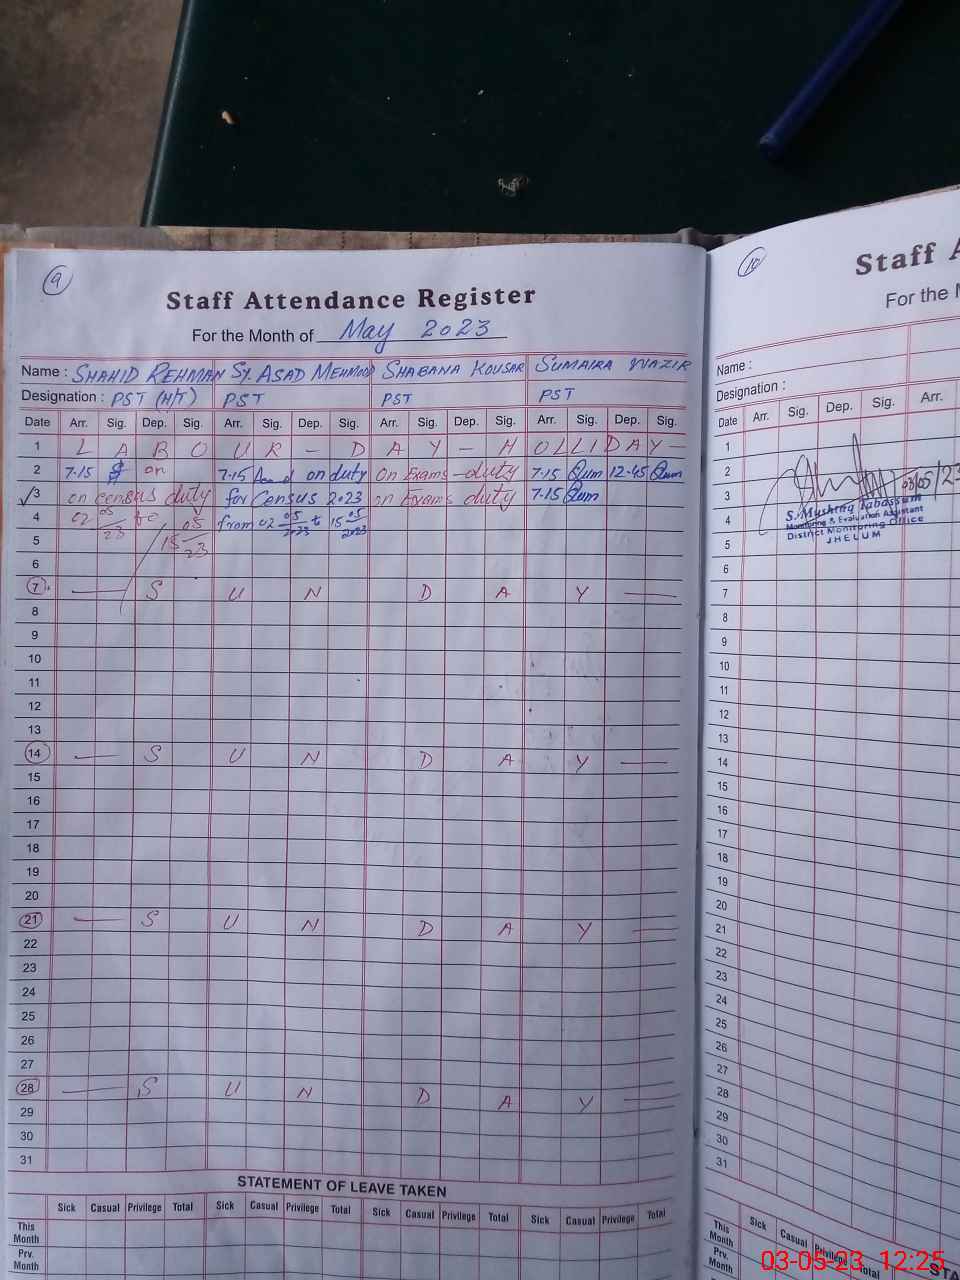 9
Staff Attendance Register
For the Month of May 2023
Name : SHAHID REHMAN SY. ASAD MEHMOOD SHABANA KOUSAR SUMAIRA WAZIR
Designation : PST (H/T) PST PST PST
Date Arr. Sig. Dep. Sig. Arr. Sig. Dep. Sig. Arr. Sig. Dep. Sig. Arr. Sig. Dep. Sig.
1 L A B O U R - D A Y - H O L L I D A Y -
2 7-15 on 7-15 on duty on Exams - duty 7-15 12-45
3 on census duty for Census 2023 on Exams duty 7-15
4 02 05/23 to 15 05/23 from 02 05/2023 to 15 05/2023
5
6
7 S U N D A Y
8
9
10
11
12
13
14 S U N D A Y
15
16
17
18
19
20
21 S U N D A Y
22
23
24
25
26
27
28 S U N D A Y
29
30
31
STATEMENT OF LEAVE TAKEN
Sick Casual Privilege Total Sick Casual Privilege Total Sick Casual Privilege Total Sick Casual Privilege Total
This Month
Prv. Month
10
Staff A
For the M
Name :
Designation :
Date Arr. Sig. Dep. Sig. Arr.
1
2
3 03/05/23
S. Mushtaq Tabassum
Monitoring & Evaluation Assistant
District Monitoring Office
JHELUM
4
5
6
7
8
9
10
11
12
13
14
15
16
17
18
19
20
21
22
23
24
25
26
27
28
29
30
31
STA
Sick Casual Privilege Total
This Month
Prv. Month
03-05-23 12:25